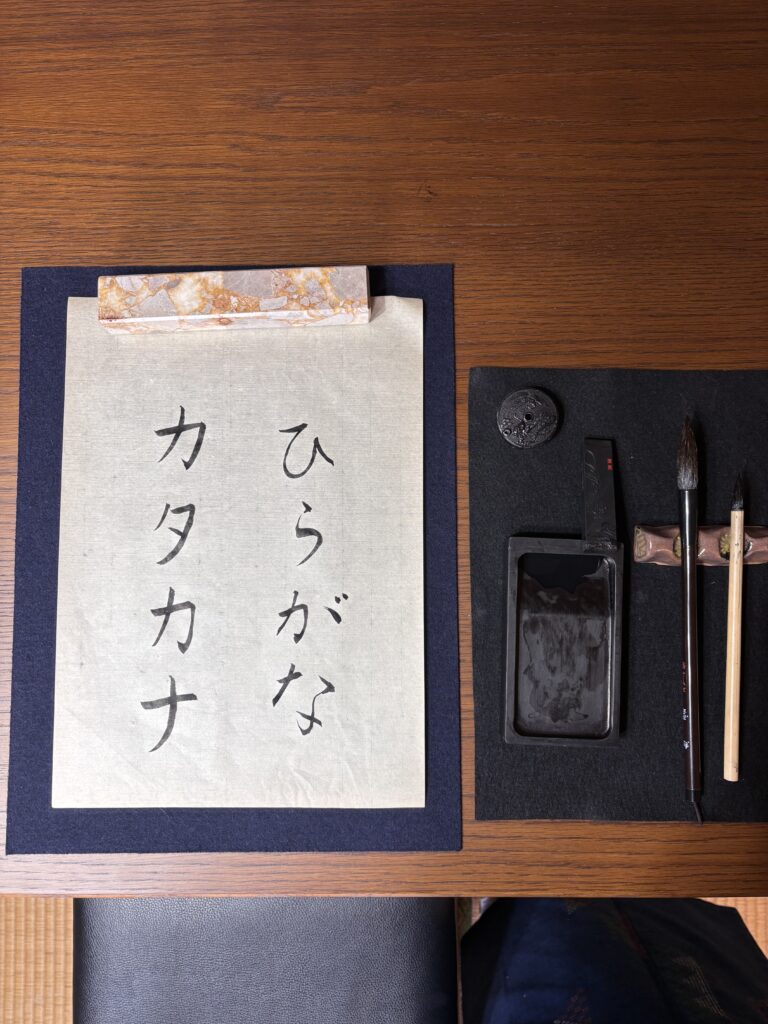 ひらがな
カタカナ